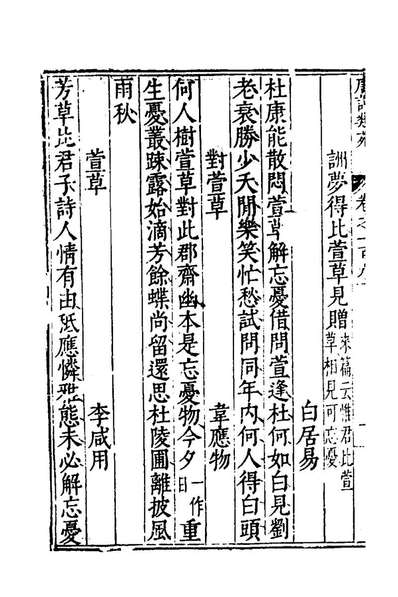 唐詩類苑 卷之一百八
詶夢得比萱草見贈 來篇云惟君比萱草相見可忘憂
白居易
杜康能散悶萱草解忘憂借問萱逢杜何如白見劉
老衰勝少夭閒樂笑忙愁試問同年內何人得白頭
對萱草 韋應物
何人樹萱草對此郡齋幽本是忘憂物今夕一作日重
生憂叢疎露始滴芳餘蝶尚留還思杜陵圃離披風
雨秋
萱草 李咸用
芳草比君子詩人情有由秪應憐雅態未必解忘憂